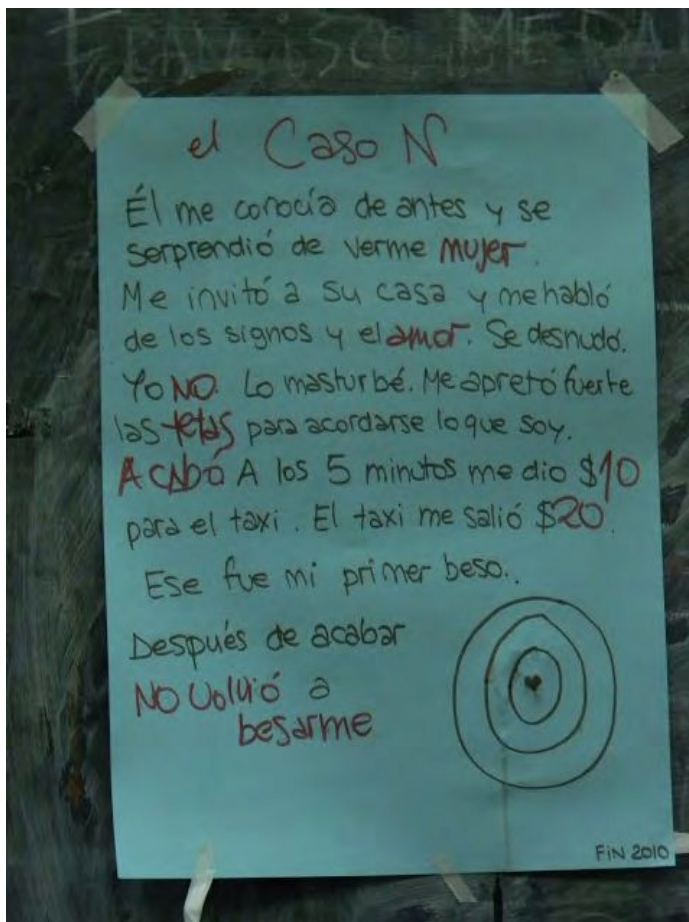 el Caso N
Él me conocía de antes y se
sorprendió de verme mujer.
Me invitó a su casa y me habló
de los signos y el amor. Se desnudó.
Yo NO. Lo masturbé. Me apretó fuerte
las tetas para acordarse lo que soy.
ACABÓ A los 5 minutos me dio $10
para el taxi. El taxi me salió $20.
Ese fue mi primer beso..
Después de acabar
NO volvió a
besarme
FIN 2010